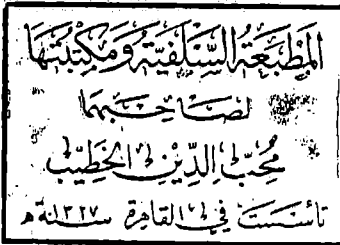 المَطْبَعَةُ السَّلَفِيَّةُ وَمَكْتَبَتُهَا
لصَاحِبِهَا
مُحِبُّ الدِّيْنِ الخَطِيْب
تأسَّسَتْ في القَاهِرَة سَنَة ١٣٢٧ هـ